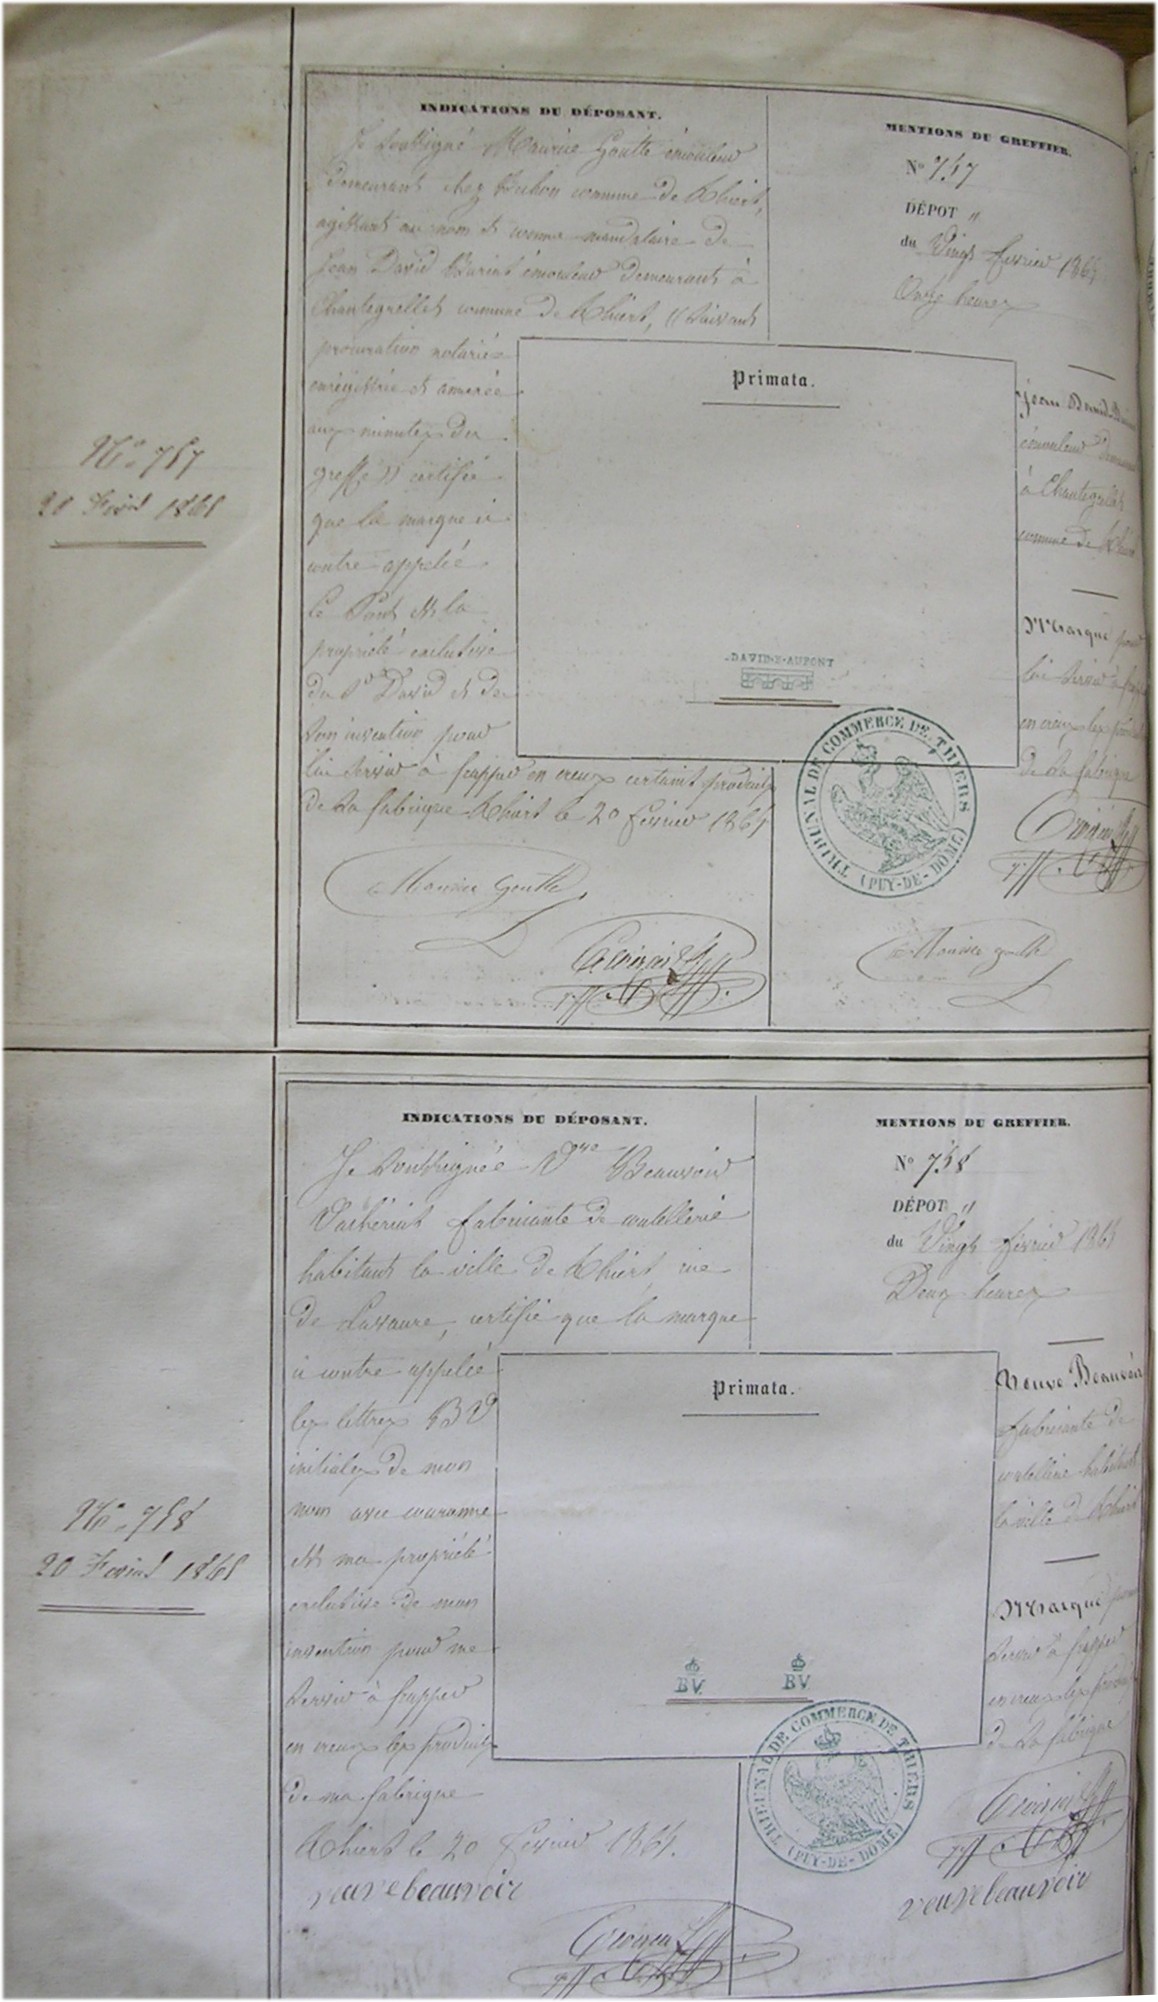 N° 757
20 Fevrier 1865
INDICATIONS DU DÉPOSANT.
Je soussigné Maurice Goutte émouleur
demeurant chez commune de Thiers,
agissant au nom et comme mandataire de
Jean David émouleur demeurant à
Chantegrellet commune de Thiers, (suivant
procuration notariée
enregistrée et annexée
aux minutes du
greffe) certifie
que la marque ci
contre appelée
le Pont est la
propriété exclusive
du Sr David et de
son invention pour
lui servir à frapper en creux certains produits
de sa fabrique Thiers le 20 février 1865
Maurice Goutte
MENTIONS DU GREFFIER.
N° 757
DÉPOT "
du Vingt février 1865
Onze heures
Primata.
DAVID-E-AUPONT
TRIBUNAL DE COMMERCE DE THIERS
(PUY-DE-DOME)
Jean David
émouleur
à Chantegrellet
commune de Thiers
Marque pour
lui servir à frapper
en creux les produits
de sa fabrique
Maurice Goutte
N° 758
20 Fevrier 1865
INDICATIONS DU DÉPOSANT.
Je soussignée Vve Beauvoir
fabricante de coutellerie
habitant la ville de Thiers rue
de Lavaure, certifie que la marque
ci contre appelée
les lettres B V
initiales de mon
nom avec couronne
est ma propriété
exclusive de mon
invention pour me
servir à frapper
en creux les produits
de ma fabrique
Thiers le 20 février 1865.
veuve beauvoir
MENTIONS DU GREFFIER.
N° 758
DÉPOT "
du Vingt février 1865
Deux heures
Primata.
BV. BV
TRIBUNAL DE COMMERCE DE THIERS
(PUY-DE-DOME)
Veuve Beauvoir
fabricante de
coutellerie habitant
la ville de Thiers
Marque pour
servir à frapper
en creux les produits
de sa fabrique
veuve beauvoir